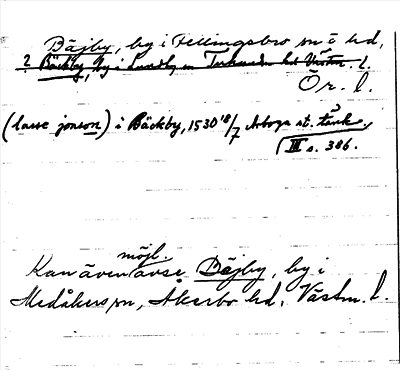 Bäjby, by i Fellingsbro sn o hd,
? Bäckby, by i Lundby sn Tuhundra hd Västm. l.
Ör. l.
(lasse jonson) i Bäckby, 1530 18/7 Arboga st. tänk.
III s. 386.
möjl.
Kan även avse Bäjby, by i
Medåkers sn, Åkerbo hd, Västm. l.